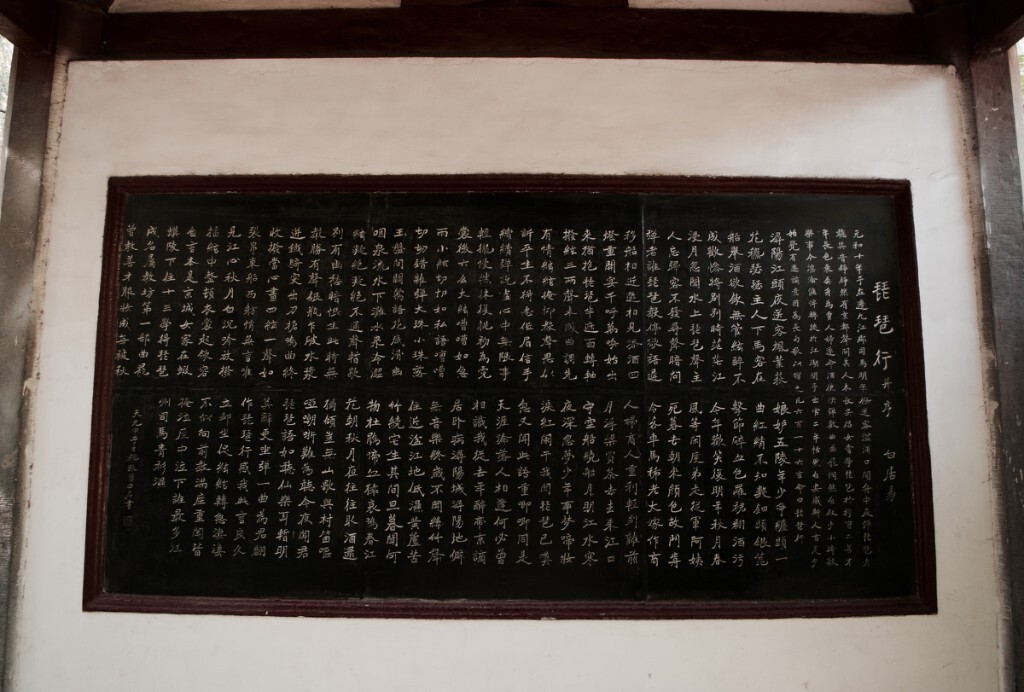 琵琶行 并序 白居易
元和十年予左遷九江郡司馬明年秋送客湓浦口聞舟中夜彈琵琶者
聽其音錚錚然有京都聲問其人本長安倡女嘗學琵琶於穆曹二善才
年長色衰委身為賈人婦遂命酒使快彈數曲曲罷憫然自敘少小時歡
樂事今漂淪憔悴轉徙於江湖間予出官二年恬然自安感斯人言是夕
始覺有遷謫意因為長句歌以贈之凡六百一十六言命曰琵琶行
潯陽江頭夜送客楓葉荻
花秋瑟瑟主人下馬客在
船舉酒欲飲無管絃醉不
成歡慘將別別時茫茫江
浸月忽聞水上琵琶聲主
人忘歸客不發尋聲暗問
彈者誰琵琶聲停欲語遲
移船相近邀相見添酒回
燈重開宴千呼萬喚始出
來猶抱琵琶半遮面轉軸
撥絃三兩聲未成曲調先
有情絃絃掩抑聲聲思似
訴平生不得志低眉信手
續續彈說盡心中無限事
輕攏慢撚抹復挑初為霓
裳後六幺大絃嘈嘈如急
雨小絃切切如私語嘈嘈
切切錯雜彈大珠小珠落
玉盤間關鶯語花底滑幽
咽泉流水下灘水泉冷澀
絃凝絕凝絕不通聲暫歇
別有幽愁暗恨生此時無
聲勝有聲銀瓶乍破水漿
迸鐵騎突出刀槍鳴曲終
收撥當心畫四絃一聲如
裂帛東船西舫悄無言唯
見江心秋月白沉吟放撥
插絃中整頓衣裳起斂容
自言本是京城女家在蝦
蟆陵下住十三學得琵琶
成名屬教坊第一部曲罷
曾教善才服妝成每被秋
娘妒五陵年少爭纏頭一
曲紅綃不知數鈿頭銀篦
擊節碎血色羅裙翻酒污
今年歡笑復明年秋月春
風等閑度弟走從軍阿姨
死暮去朝來顏色改門前
冷落車馬稀老大嫁作商
人婦商人重利輕別離前
月浮梁買茶去去來江口
守空船繞船月明江水寒
夜深忽夢少年事夢啼妝
淚紅闌干我聞琵琶已嘆
息又聞此語重唧唧同是
天涯淪落人相逢何必曾
相識我從去年辭帝京謫
居臥病潯陽城潯陽地僻
無音樂終歲不聞絲竹聲
住近湓江地低濕黃蘆苦
竹繞宅生其間旦暮聞何
物杜鵑啼血猿哀鳴春江
花朝秋月夜往往取酒還
獨傾豈無山歌與村笛嘔
啞嘲哳難為聽今夜聞君
琵琶語如聽仙樂耳暫明
莫辭更坐彈一曲為君翻
作琵琶行感我此言良久
立卻坐促絃絃轉急淒淒
不似向前聲滿座重聞皆
掩泣座中泣下誰最多江
州司馬青衫濕